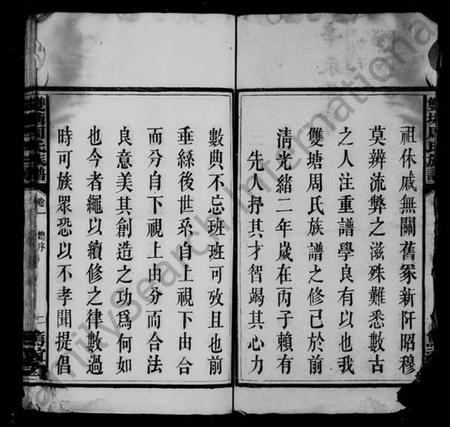 祖休戚無關舊冢新阡昭穆
莫辨流弊之滋殊難悉數古
之人注重譜學良有以也我
雙塘周氏族譜之修已於前
清光緒二年歲在丙子賴有
先人抒其才智竭其心力
數典不忘班班可攷且也前
垂絲後世系自上視下由合
而分自下視上由分而合法
良意美其創造之功爲何如
也今者繩以續修之律數過
時可族眾恐以不孝聞提倡
雙塘周氏族譜
卷一
總序
二
FamilySearch International